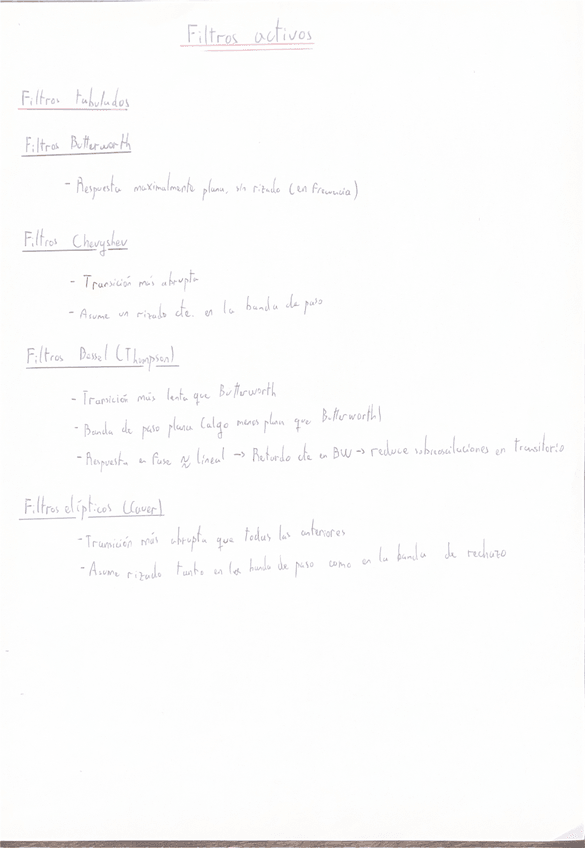 Filtros activos
Filtros tabulados
Filtros Butterworth
- Respuesta maximalmente plana, sin rizado (en frecuencia)
Filtros Chevyshev
- Transición más abrupta
- Asume un rizado cte. en la banda de paso
Filtros Bessel (Thompson)
- Transición más lenta que Butterworth
- Banda de paso plana (algo menos plana que Butterworth)
- Respuesta en fase ≈ lineal → Retardo cte en BW → reduce sobreoscilaciones en transitorio
Filtros elípticos (Cauer)
- Transición más abrupta que todas las anteriores
- Asume rizado tanto en la banda de paso como en la banda de rechazo